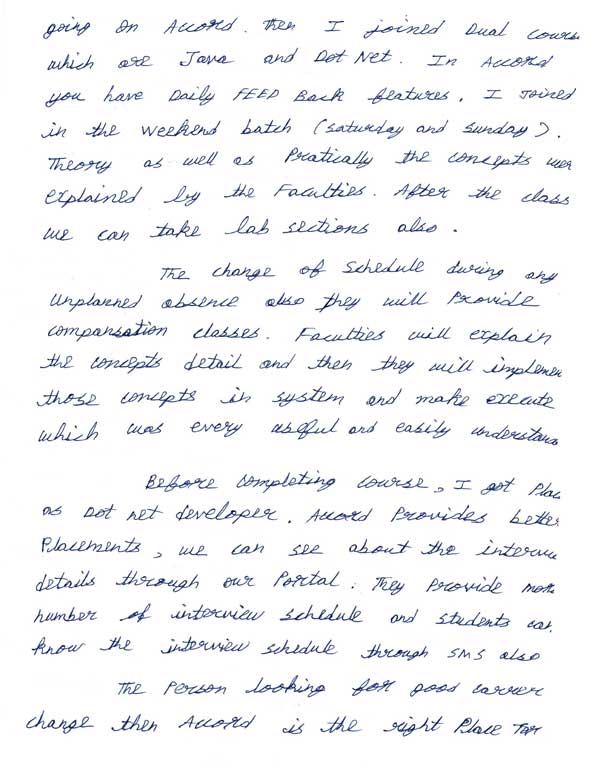 going on Accord. then I joined Dual Course
which are Java and Dot Net. In Accord
you have Daily FEED Back features. I Joined
in the weekend batch (saturday and sunday).
Theory as well as Pratically the concepts wer
explained by the Faculties. After the class
we can take lab sections also.
The change of schedule during any
unplanned absence also they will Provide
compansation classes. Faculties will explain
the concepts detail and then they will implemen
those concepts in system and make execute
which was every useful and easily understand
Before completing course, I got Plac
as Dot net developer. Accord Provides better
Placements, we can see about the interview
details through our Portal. They Provide more
number of interview schedule and students can
know the interview schedule through SMS also
The Person looking for good carrer
change then Accord is the right Place